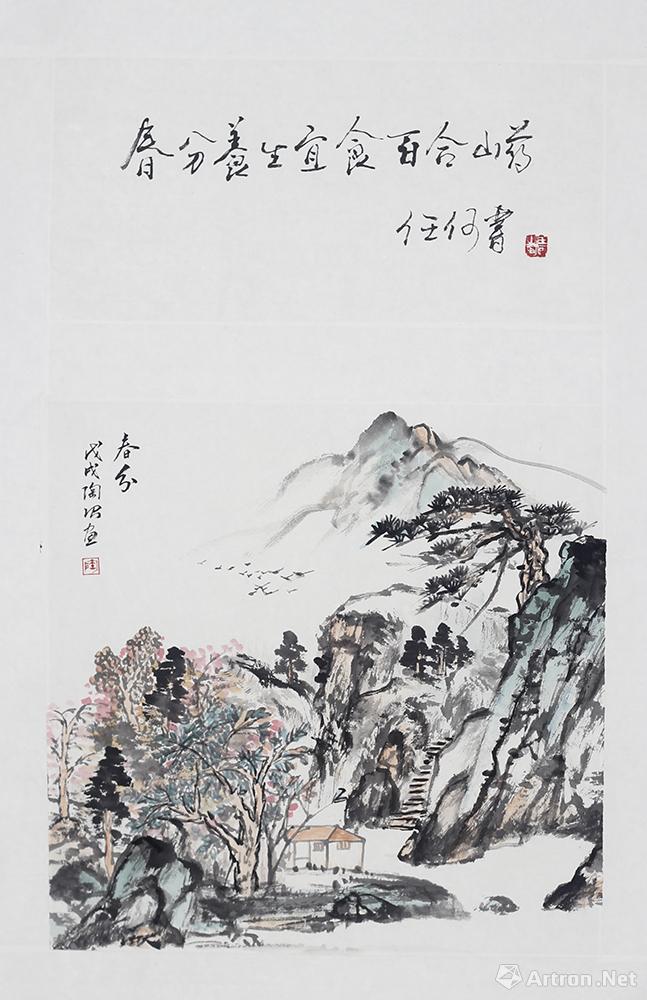 春分養生宜食百合山药
任何書
春分
戊戌陶沼画
Artron.Net